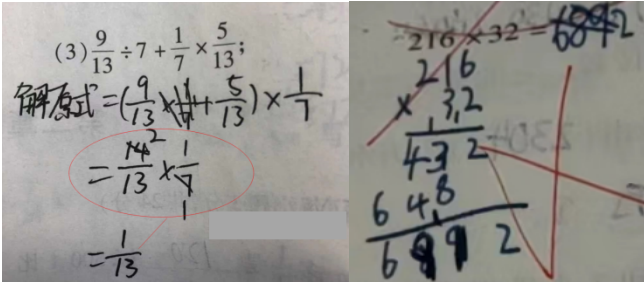 (3) 9/13 ÷ 7 + 1/7 × 5/13;
解原式 = (9/13 × 1 + 5/13) × 1/7
= 14/13 × 1/7
2
1
= 1/13
216 × 32 = 6892
216
× 32
1 1
432
648
6892